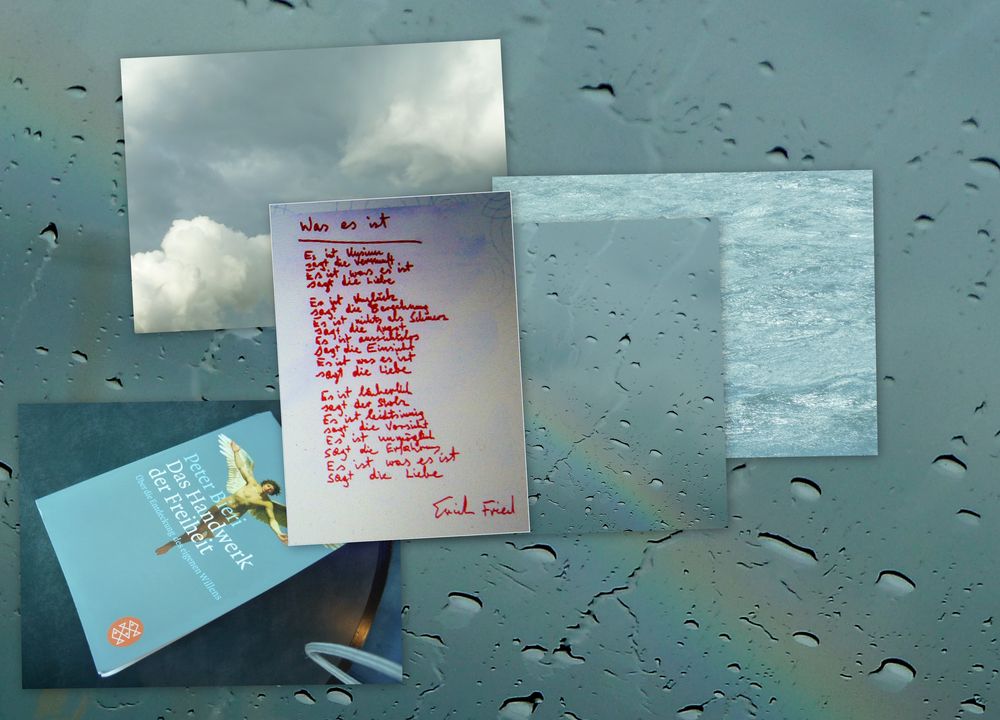 Was es ist
Es ist Unsinn
sagt die Vernunft
Es ist was es ist
sagt die Liebe
Es ist Unglück
sagt die Berechnung
Es ist nichts als Schmerz
sagt die Angst
Es ist aussichtslos
sagt die Einsicht
Es ist was es ist
sagt die Liebe
Es ist lächerlich
sagt der Stolz
Es ist leichtsinnig
sagt die Vorsicht
Es ist unmöglich
sagt die Erfahrung
Es ist was es ist
sagt die Liebe
Erich Fried
Peter Bieri
Das Handwerk
der Freiheit
Über die Entdeckung des eigenen Willens